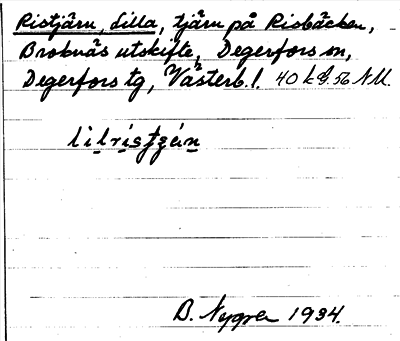 Ristjärn, Lilla, tjärn på Risbäcken,
Broknäs utskifte, Degerfors sn,
Degerfors tg, Västerb. l. 40 k
lilristzán
B. Nygren 1934.